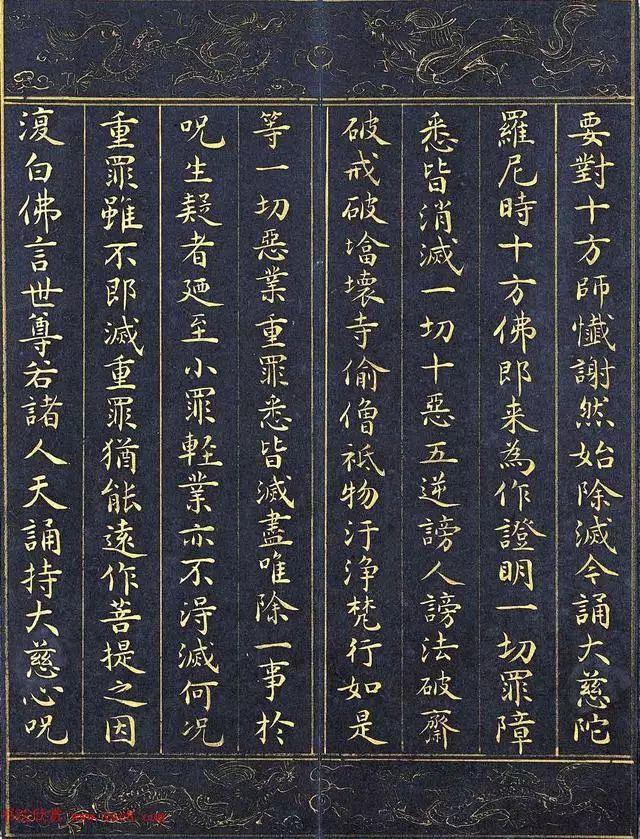 要對十方師懴謝然始除滅今誦大慈陀
羅尼時十方佛即来為作證明一切罪障
悉皆消滅一切十惡五逆謗人謗法破齋
破戒破塔壊寺偷僧祇物汙浄梵行如是
等一切惡業重罪悉皆滅盡唯除一事於
呪生疑者廼至小罪軽業亦不淂滅何况
重罪雖不即滅重罪猶能遠作菩提之因
澓白佛言世尊若諸人天誦持大慈心呪